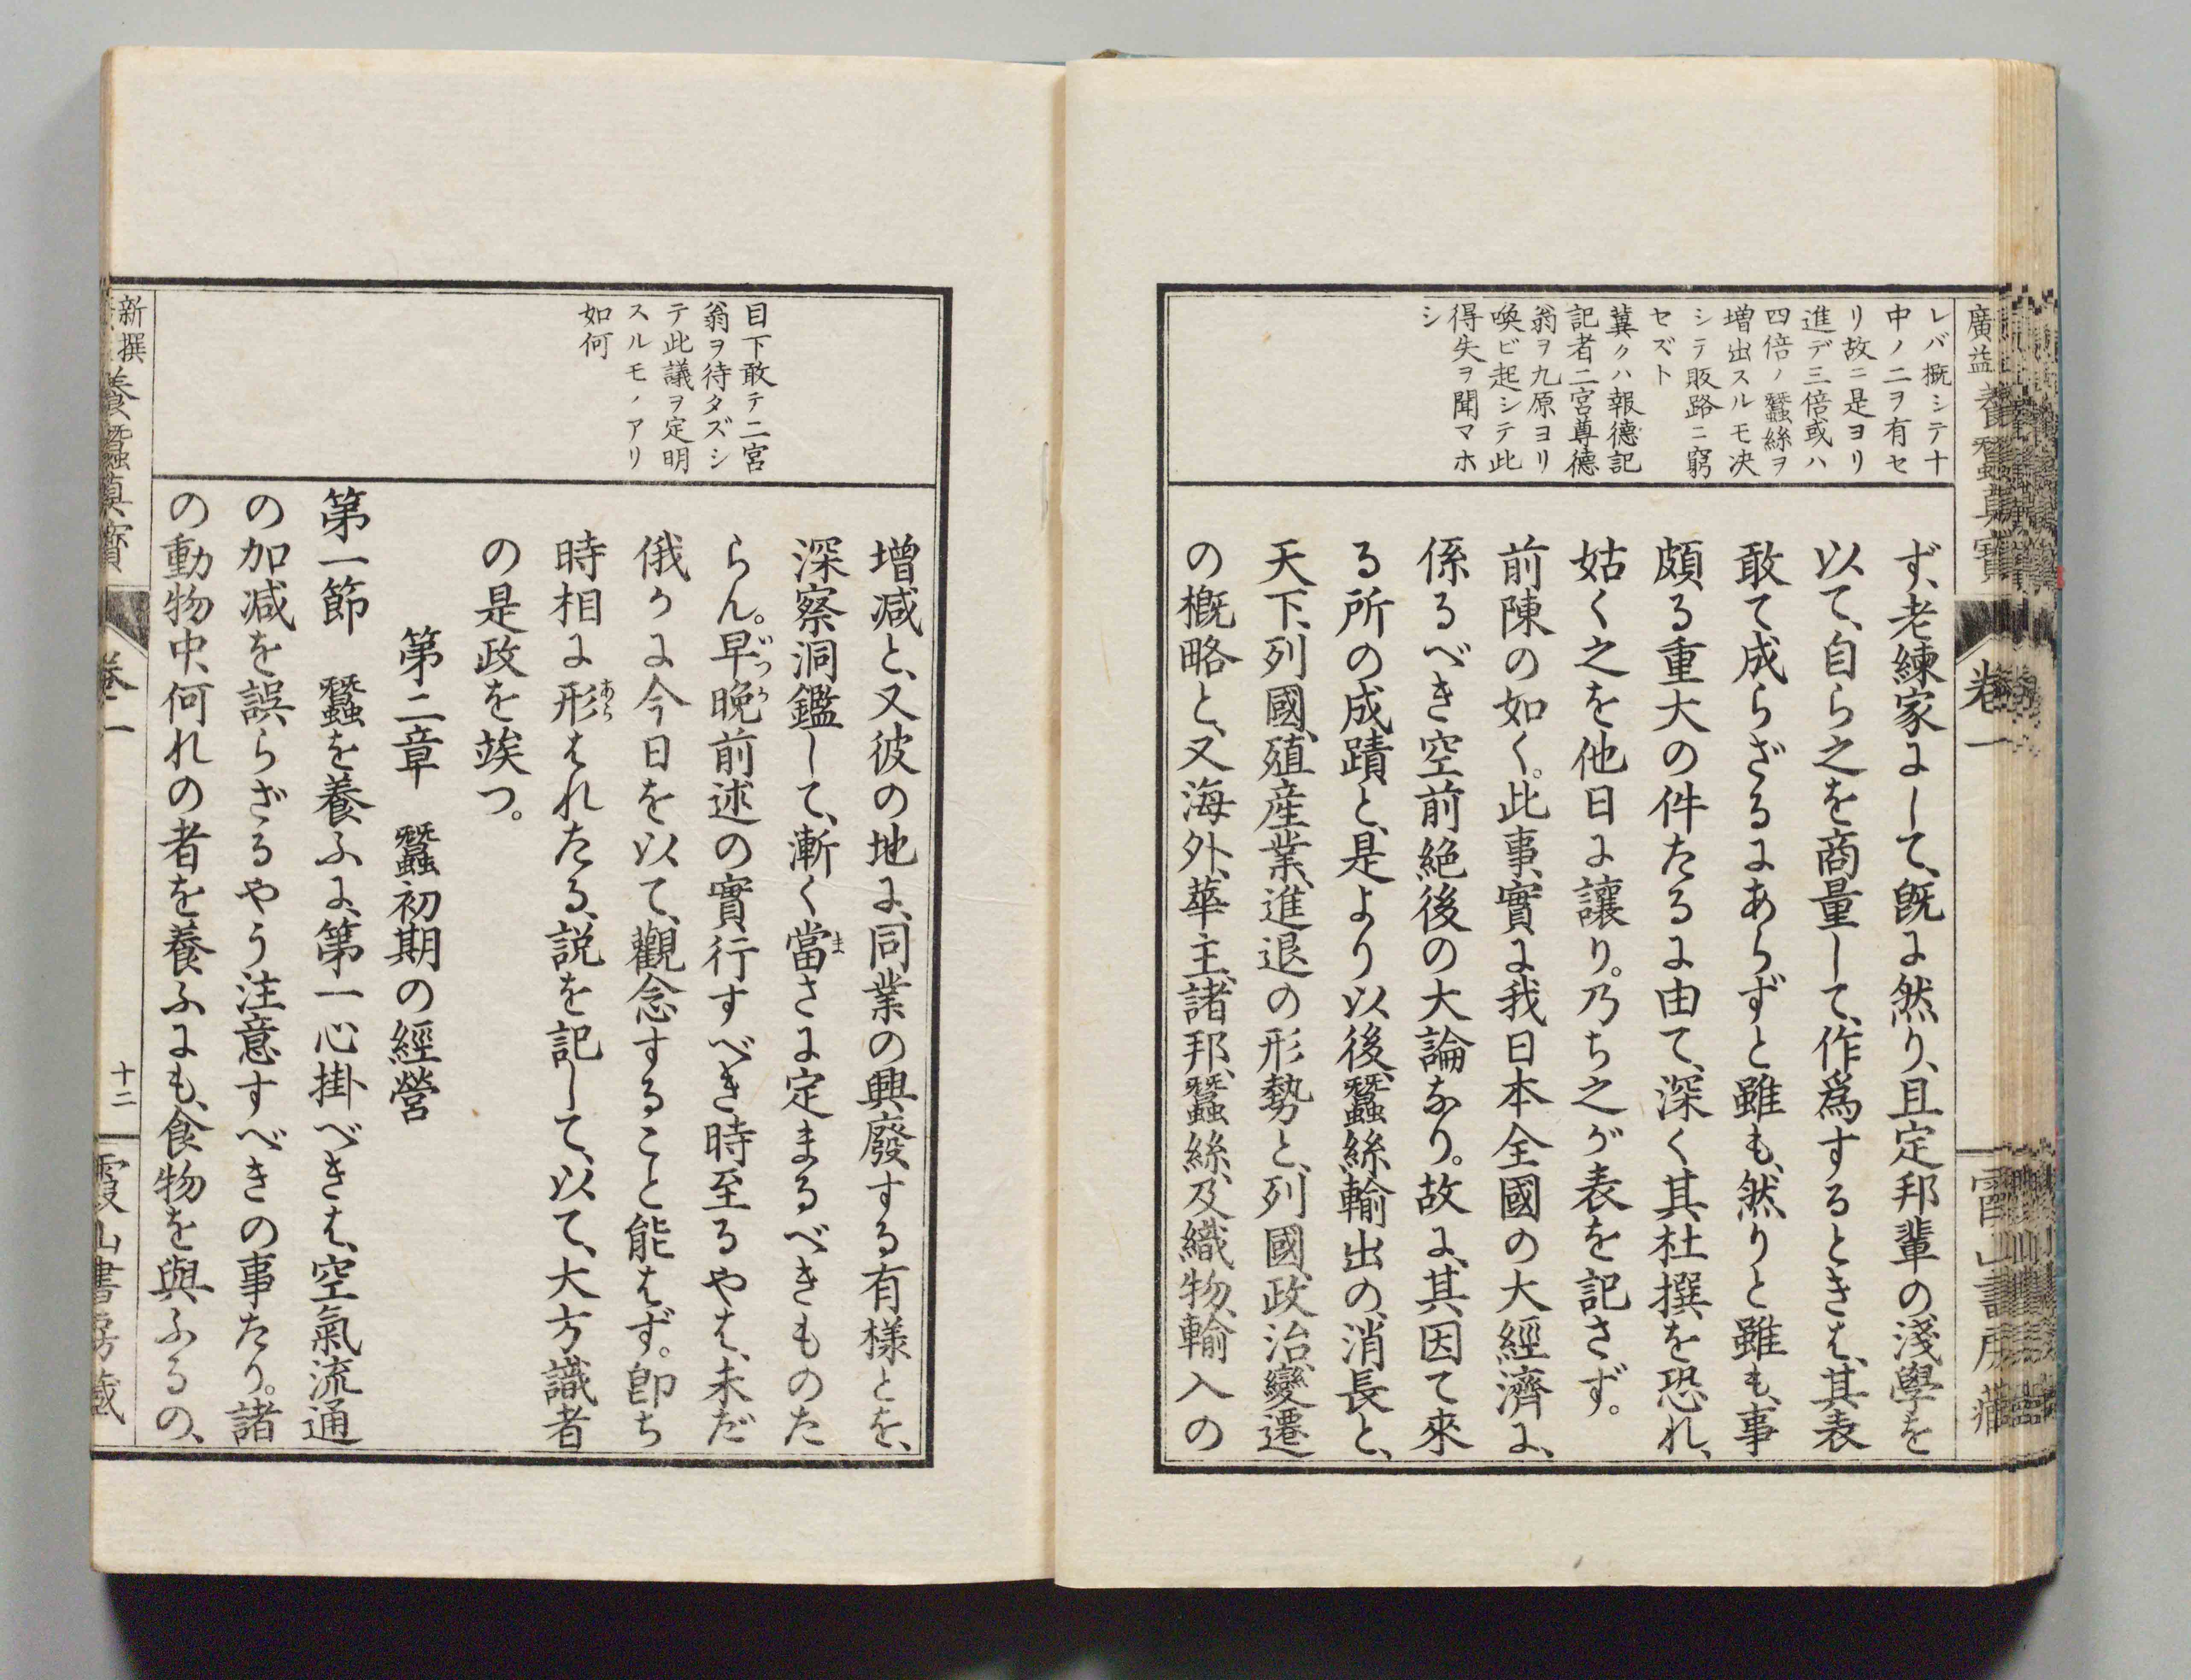 廣益養蠶真寶 卷一
レバ概シテ十
中ノ二ヲ有セ
リ故ニ是ヨリ
進デ三倍或ハ
四倍ノ蠶絲ヲ
増出スルモ决
シテ販路ニ窮
セズト
冀クハ報德記
記者二宮尊德
翁ヲ九原ヨリ
喚ビ起シテ此
得失ヲ聞マホ
シ
ず、老練家にして、既に然り、且定邦輩の、淺學を
以て、自ら之を商量して、作爲するときは、其表
敢て成らざるにあらずと雖も、然りと雖も、事
頗る重大の件たるに由て、深く其杜撰を恐れ、
姑く之を他日に讓り。乃ち之が表を記さず。
前陳の如く。此事、實に我日本全國の大經濟に、
係るべき空前絶後の大論なり。故に、其因て來
る所の成蹟と、是より以後、蠶絲輸出の、消長と、
天下、列國、殖産業、進退の形勢と、列國、政治、變遷
の概略と、又海外、華主、諸邦、蠶絲、及織物、輸入の
目下敢テ二宮
翁ヲ待タズシ
テ此議ヲ定明
スルモノアリ
如何
増減と、又彼の地に、同業の興廢する有様とを、
深察洞鑑して、漸く當さに定まるべきものた
らん。早晩前述の實行すべき時至るやは、未だ
俄かに今日を以て、觀念すること能はず。卽ち
時相に形はれたる、説を記して、以て、大方識者
の是政を竢つ。
第二章 蠶初期の經營
第一節 蠶を養ふに、第一心掛べきは、空氣流通
の加減を誤らざるやう注意すべきの事たり。諸
の動物中、何れの者を養ふにも、食物を與ふるの、
新撰養蠶真寶 卷一 十二 霞山書房藏